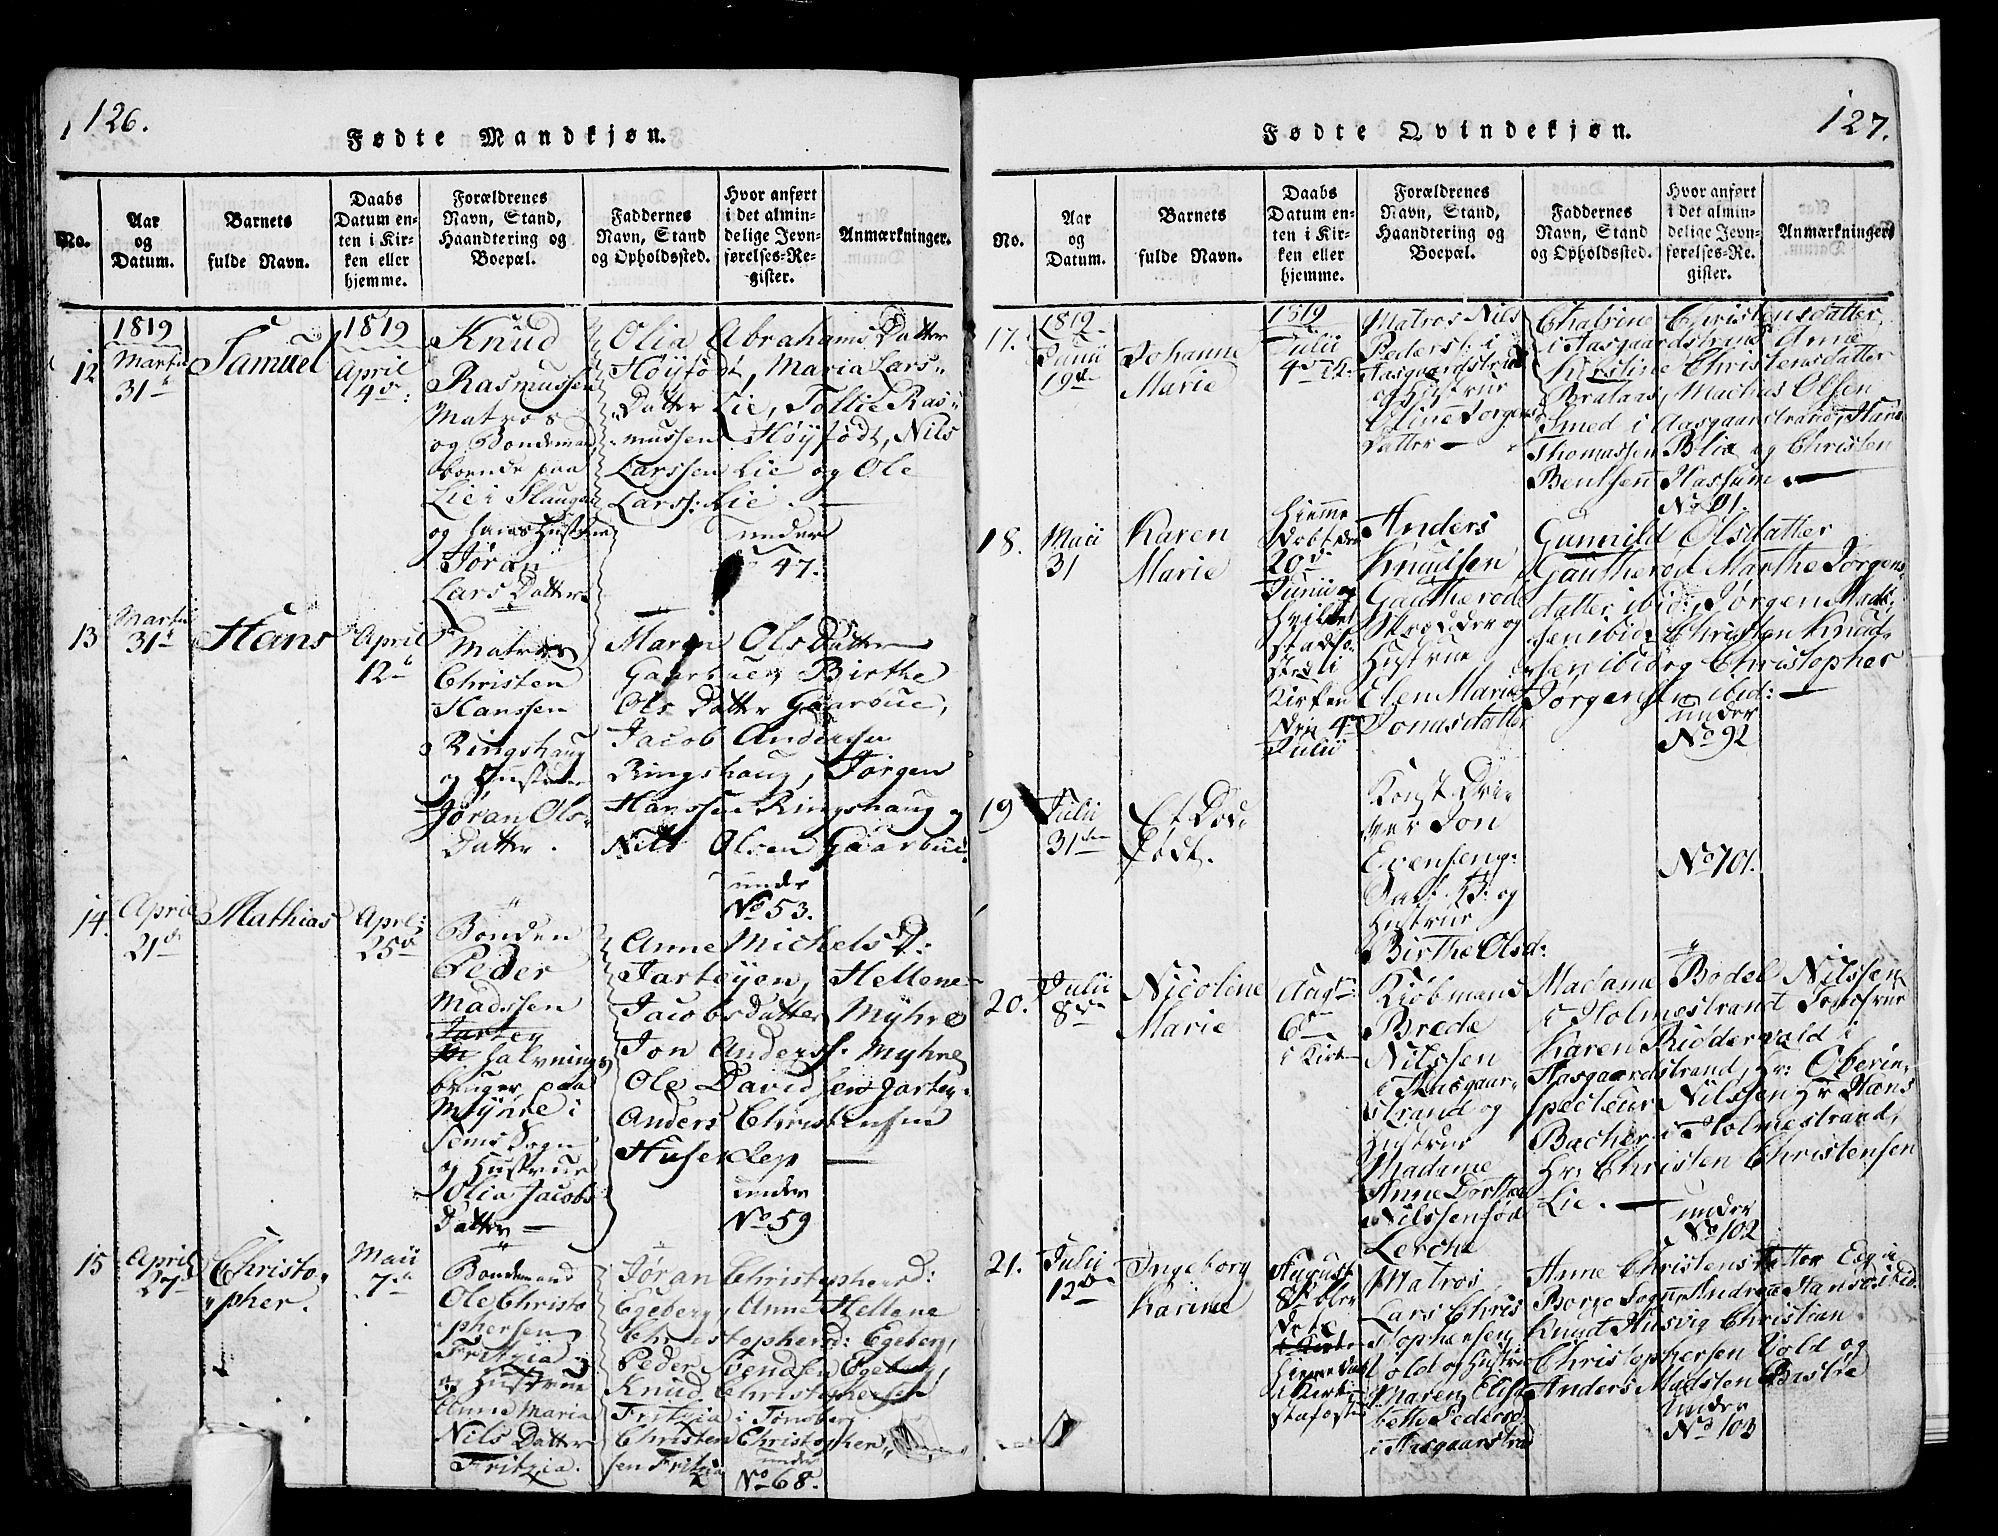 126.
Fødte Mandkjøn.
No.
Aar
og
Datum.
Barnets
fulde Navn.
Daabs
Datum en-
ten i Kir-
ken eller
hjemme.
Forældrenes
Navn, Stand,
Haandtering og
Boepæl.
Faddernes
Navn, Stand
og Opholdssted.
Hvor anført
i det almin-
delige Jevn-
førelses-Re-
gister.
Anmærkninger.
12
1819
Martii
31
Samuel
1819
April
4
Knud
Rasmussen
Matros
og Bondemand
boende paa
Lie i Slaugen
og hans Hustrue
Jøran
Lars Datter
Olia Abrahams Datter
Høyfødt, Maria Lars-
Datter Lie, Tollie Ras-
mussen Høyfødt, Nils
Larssen Lie og Ole
Larss: Lie.
under
47.
13
Martii
31
Hans
April
12
Matros
Christen
Hanssen
Ringshaug
og Hustrue
Jøran Ols-
Datter.
Maren Ols Datter
Gaarbue, Birthe
Ols Datter Gaarbue,
Jacob Andersen
Ringshaug, Jørgen
Hanssen Ringshaug og
Nils Olsen Gaarbue.
under
No 53.
14.
April
21
Mathias
Apri:
25
Bonden
Peder
Madssen
Jartey
halvnings
bruger paa
Myhre i
Sems Sogn
og Hustrue
Olia Jacobs
Datter
Anne Michels D:
Jarteyen, Hellene
Jacobs Datter Myhre
Jon Anderss: Myhre
Ole Davidsen Jartey-
Anders Christensen
Huseklep
under
No 59
15
April
27
Christo-
pher.
Maii
7
Bondemand
Ole Christo
phersen
Fritzia
og Hustrue
Anne Maria
Nils Datter
Fritzia.
Jøran Christopherd:
Egeberg, Anne Hellene
Christopherd: Egeberg,
Peder Svendsen Egeberg,
Knud Christophersen
Fritzia i Tønsberg
Christen Christopher-
sen Fritzia
under
No 68.
127.
Fødte Qvindekjøn.
No.
Aar
og
Datum.
Barnets
fulde Navn.
Daabs
Datum en-
ten i Kir-
ken eller
hjemme.
Forældrenes
Navn, Stand,
Haandtering og
Boepæl.
Faddernes
Navn, Stand
og Opholdssted.
Hvor anført
i det almin-
delige Jevn-
førelses-Re-
gister.
Anmærkninger
17.
1819.
Junii
19de
Johanne
Marie
1819
Julii
4de
Matros Nils
Peders: i
Aasgaardstrand
og Hustrue
Oline Jorgens
Datter
Chatrine Christensdatter
i Aasgaardstrand, Anne
Kirstine Christensdatter
Brataas, Mathis Olsen
Smed i Aasgaardstrand, Hans
Thomassen Blix og Christen
Bentsen Hassum
No 91.
18.
Maii
31
Karen
Marie
Hjemme
døbt den
20de
Junii og
Kirken
den 4
Julii
Anders
Knudsen
Gautherød
Skrædder og
Hustrue
Elen Marie
Jonasdatter
Gunnild Olsdatter
Gautherød Marthe Jørgens-
datter ibid:, Jørgen Mads-
sen ibid: Christen Knud-
sen ibid: og Christopher
Jørgensen ibid:
under
No 92
19
Julii
31
Et Død-
født.
Jon
Evensen
og
Hustrue
Birthe Olsd:
No 101.
20.
Julii
8de
Nicoline
Marie
Aug:
6
i Kirken
Kiøbmand
Brede
Nilssen
i Aasgaard-
strand og
Hustrue
Madame
Anne Dorthea
Nilssen fød
Lerche
Madame Bodel Nilssen
i Holmestrand Jomfrue
Karen Riddervold i
Aasgaardstrand, Hr: Oberin-
specteur Nilssen Hr Hans
Bacher i Holmestrand,
Hr: Christen Christensen
Lie.
under
No 102
21.
Julii
12
Ingeborg
Karine
August
8
Matros
Lars Chris
stophersen
Vold og Hustrue
Maren Elisa
beth Pedersd
i Aasgaardstrand
Anne Christensdatter Eeg i
Borre Sogn, Andrea Hansd
Knud Husvig Christian
Christophersen Vold og
Anders Madsen Bastøe
under
No 103